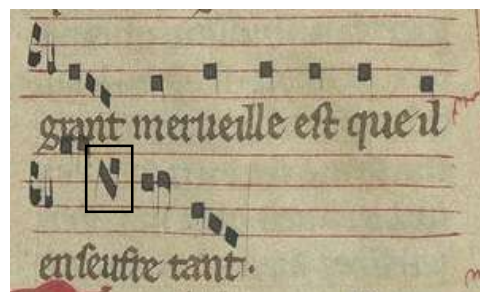 grant merueille est que il
en seufre tant.